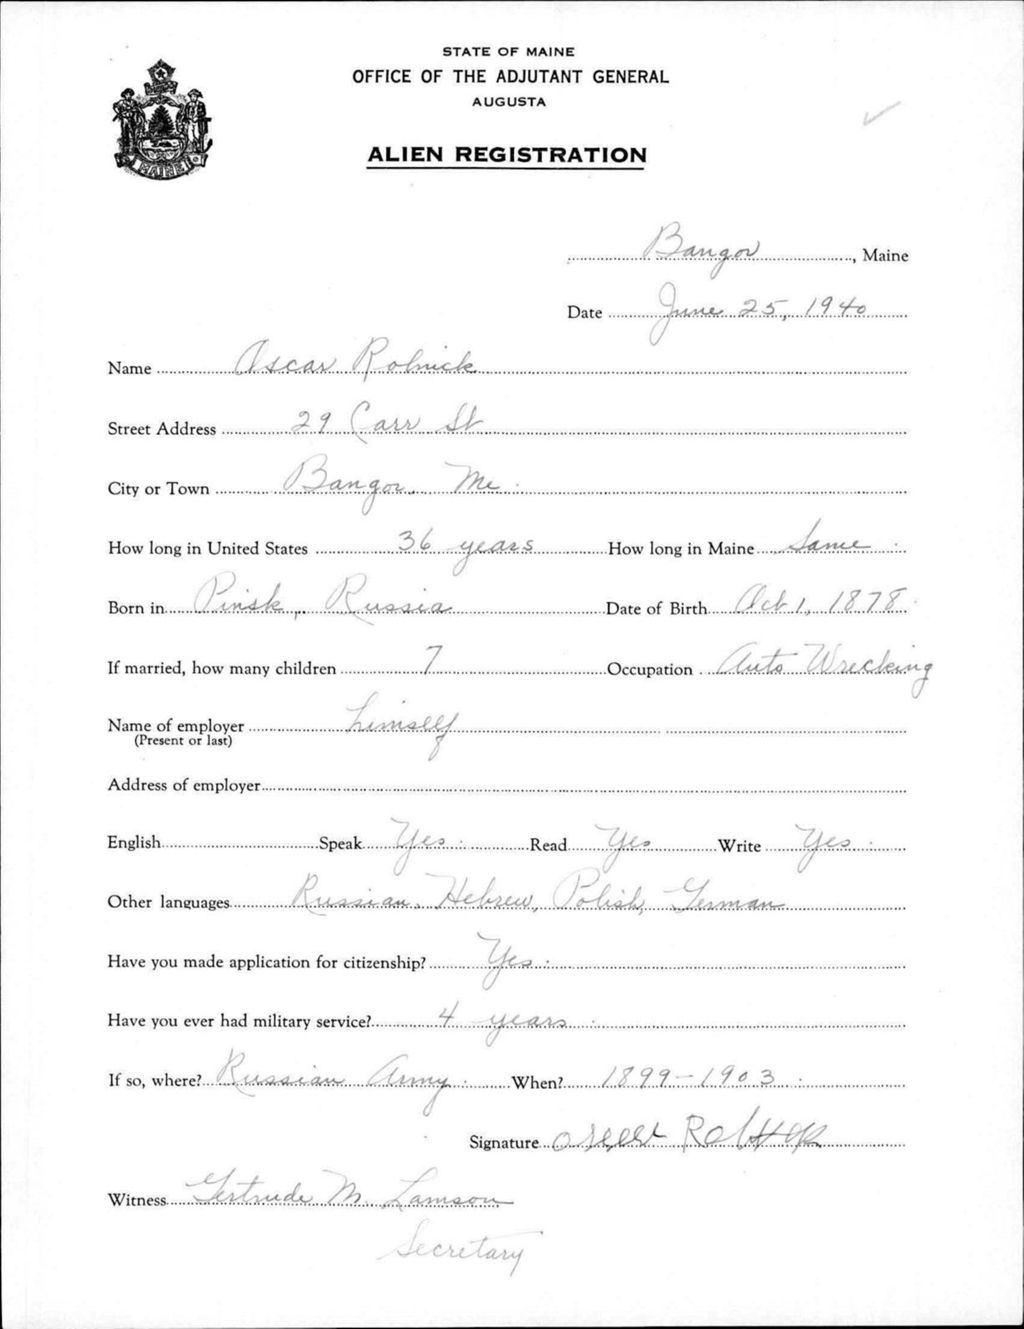 STATE OF MAINE
OFFICE OF THE ADJUTANT GENERAL
AUGUSTA
ALIEN REGISTRATION
MAINE
Bangor, Maine
Date June 25, 1940
Name Oscar Rolnick
Street Address 29 Carr St
City or Town Bangor, Me.
How long in United States 36 years How long in Maine Same
Born in Pinsk, Russia Date of Birth Oct 1, 1878
If married, how many children 7 Occupation Auto Wrecking
Name of employer himself
(Present or last)
Address of employer
English Speak Yes. Read Yes Write Yes.
Other languages Russian, Hebrew, Polish, German
Have you made application for citizenship? Yes.
Have you ever had military service? 4 years.
If so, where? Russian Army. When? 1899-1903.
Signature
Witness Gertrude M. Lamson
Secretary